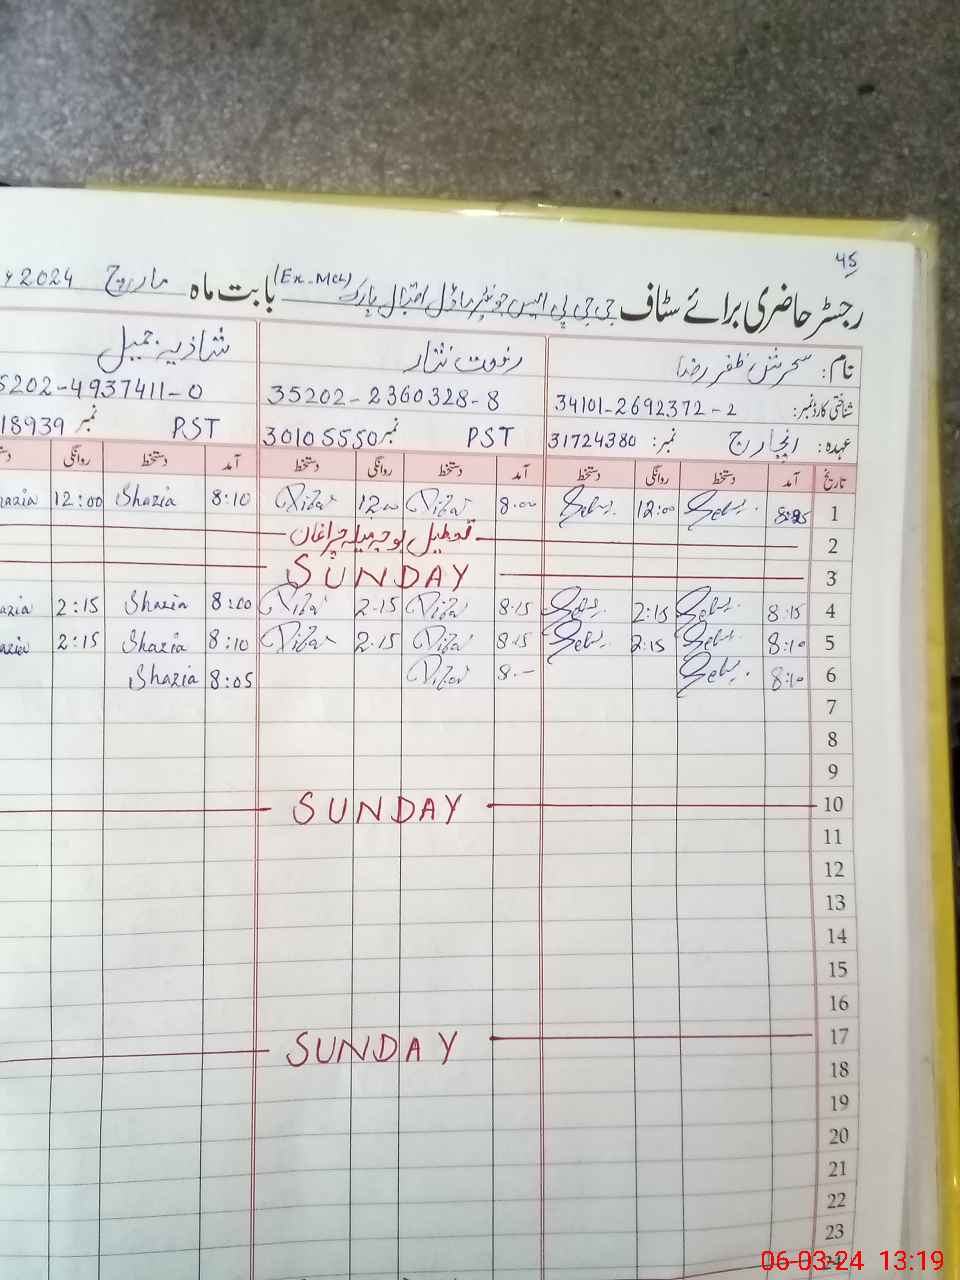 45
رجسٹر حاضری برائے سٹاف جی جی پی ایس جونیئر ماڈل اقبال پارک (Ex-MCL) بابت ماہ مارچ 2024
نام: سحرش ظفر رضا رفعت نثار شازیہ جمیل
شناختی کارڈ نمبر: 34101-2692372-2 35202-2360328-8 5202-4937411-0
عہدہ: انچارج نمبر: 31724380 PST نمبر 30105550 PST نمبر 18939
تاریخ آمد دستخط روانگی دستخط آمد دستخط روانگی دستخط آمد دستخط روانگی
1 12:00 8:00 12:00 8:10 Shazia 12:00
2 تعطیل بوجہ میلہ چراغاں
3 SUNDAY
4 8:15 2:15 8:15 2:15 8:00 Shazia 2:15
5 8:10 2:15 8:15 2:15 8:10 Shazia 2:15
6 8:10 8:- 8:05 Shazia
7
8
9
10 SUNDAY
11
12
13
14
15
16
17 SUNDAY
18
19
20
21
22
23
24
06-03-24 13:19